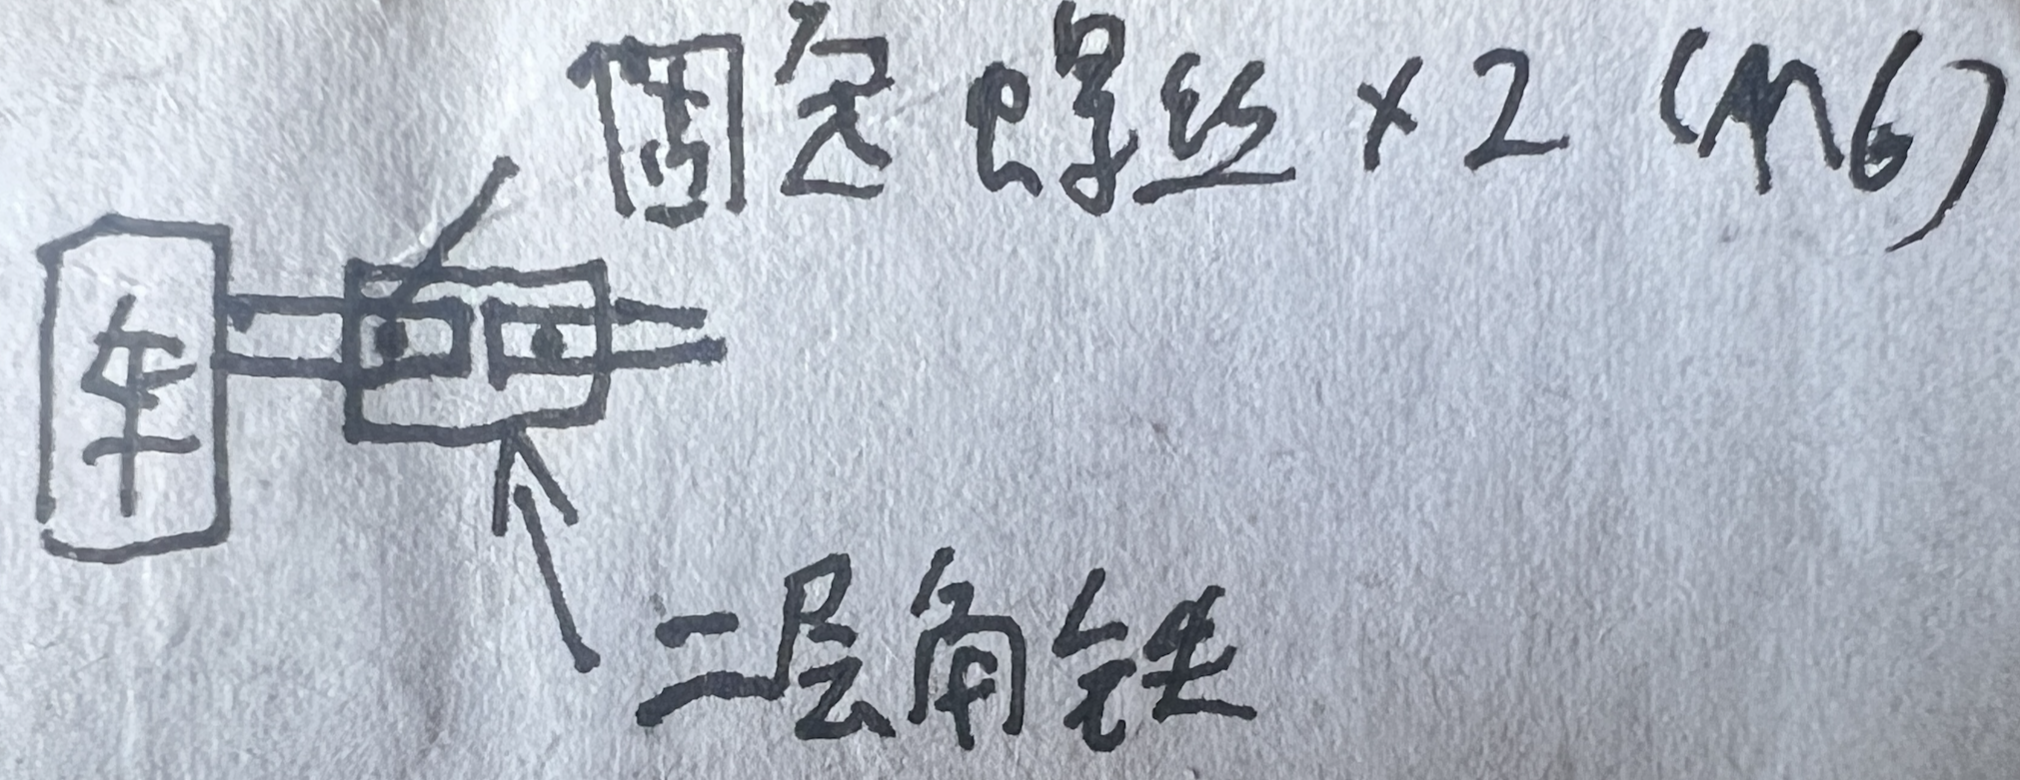 固定螺丝×2 (M6)
车
二层角铁